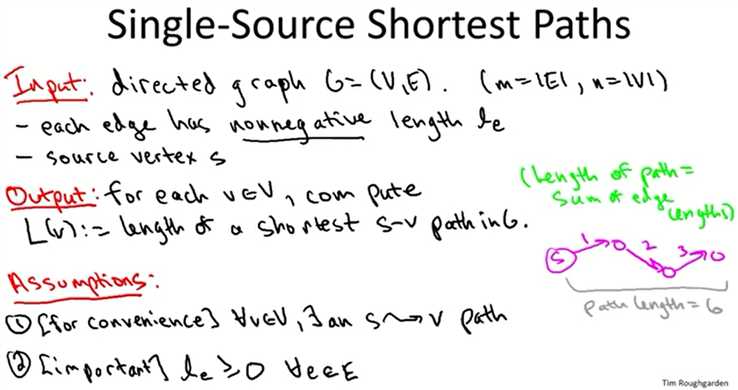 Single-Source Shortest Paths
Input: directed graph G=(V,E). (m=|E|, n=|V|)
- each edge has nonnegative length le
- source vertex s
Output: for each v∈V, compute
L(v) := length of a shortest s-v path in G.
(Length of path =
sum of edge
lengths)
S 1 2 3
path length = 6
Assumptions:
① [for convenience] ∀v∈V, ∃ an s⇝v path
② [important] le ≥ 0 ∀e∈E
Tim Roughgarden